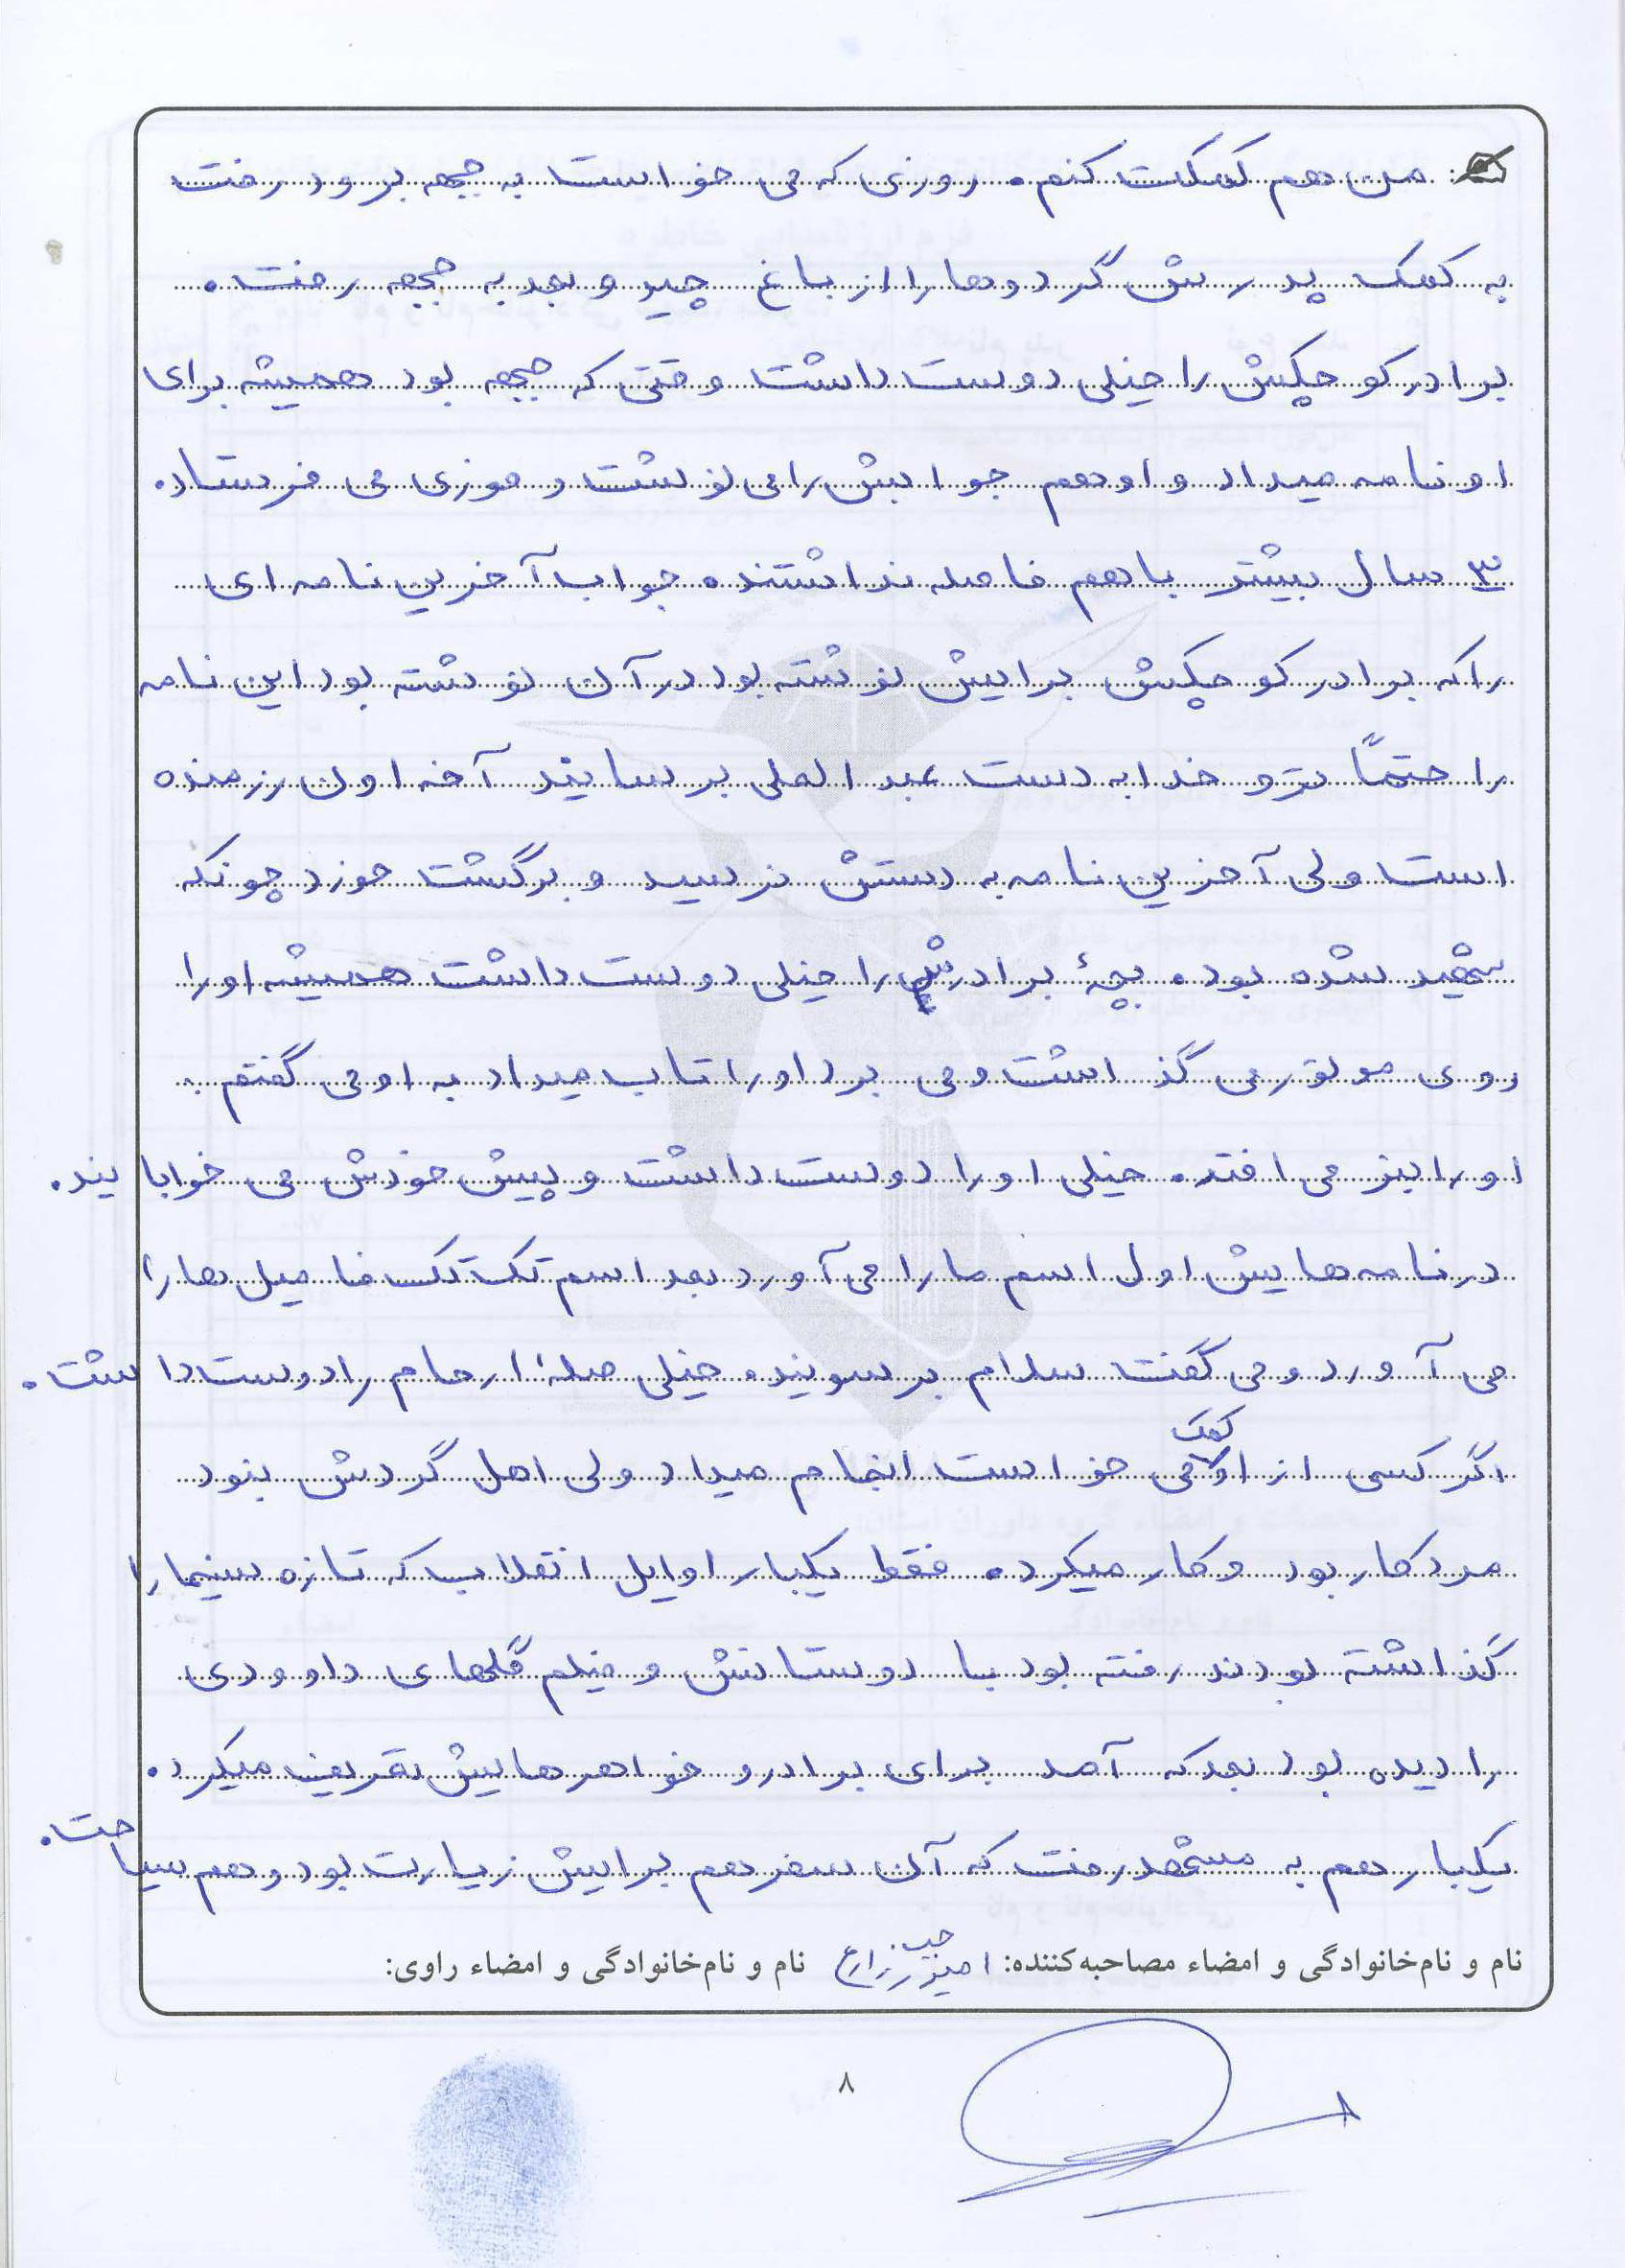 من هم کمکت کنم. روزی که می خواست به جبهه برود رفت
به کمک پدرش گردوها را از باغ چید و بعد به جبهه رفت.
برادر کوچکش را خیلی دوست داشت وقتی که جبهه بود همیشه برای
او نامه میداد و او هم جوابش را می نوشت و فوری می فرستاد.
۳ سال بیشتر با هم فاصله نداشتند. جواب آخرین نامه ای
را که برادر کوچکش برایش نوشته بود در آن نوشته بود این نامه
را حتماً ترو خدا به دست عبدالعلی برسانید آخه اون رزمنده
است ولی آخرین نامه به دستش نرسید و برگشت خورد چونکه
شهید شده بود. بچۀ برادرش را خیلی دوست داشت همیشه او را
روی موتور می گذاشت و می برد او را تاب میداد به او می گفتم:
او را نبر می افتد. خیلی او را دوست داشت و پیش خودش می خوابا یند.
در نامه هایش اول اسم ما را می آورد بعد اسم تک تک فامیل ها را
می آورد و می گفت سلام برسونید. خیلی صلۀ ارحام را دوست داشت.
اگر کسی از او کمک می خواست انجام میداد ولی اهل گردش نبود
مرد کار بود و کار میکرد. فقط یکبار اوایل انقلاب که تازه سینما را
گذاشته بودند رفته بود با دوستانش و فیلم گلهای داوودی
را دیده بود بعد که آمد برای برادر و خواهرهایش تعریف میکرد.
یکبار هم به مشهد رفت که آن سفر هم برایش زیارت بود و هم سیاحت.
نام و نام‌خانوادگی و امضاء مصاحبه‌کننده: امیر زارع نام و نام‌خانوادگی و امضاء راوی:
۸